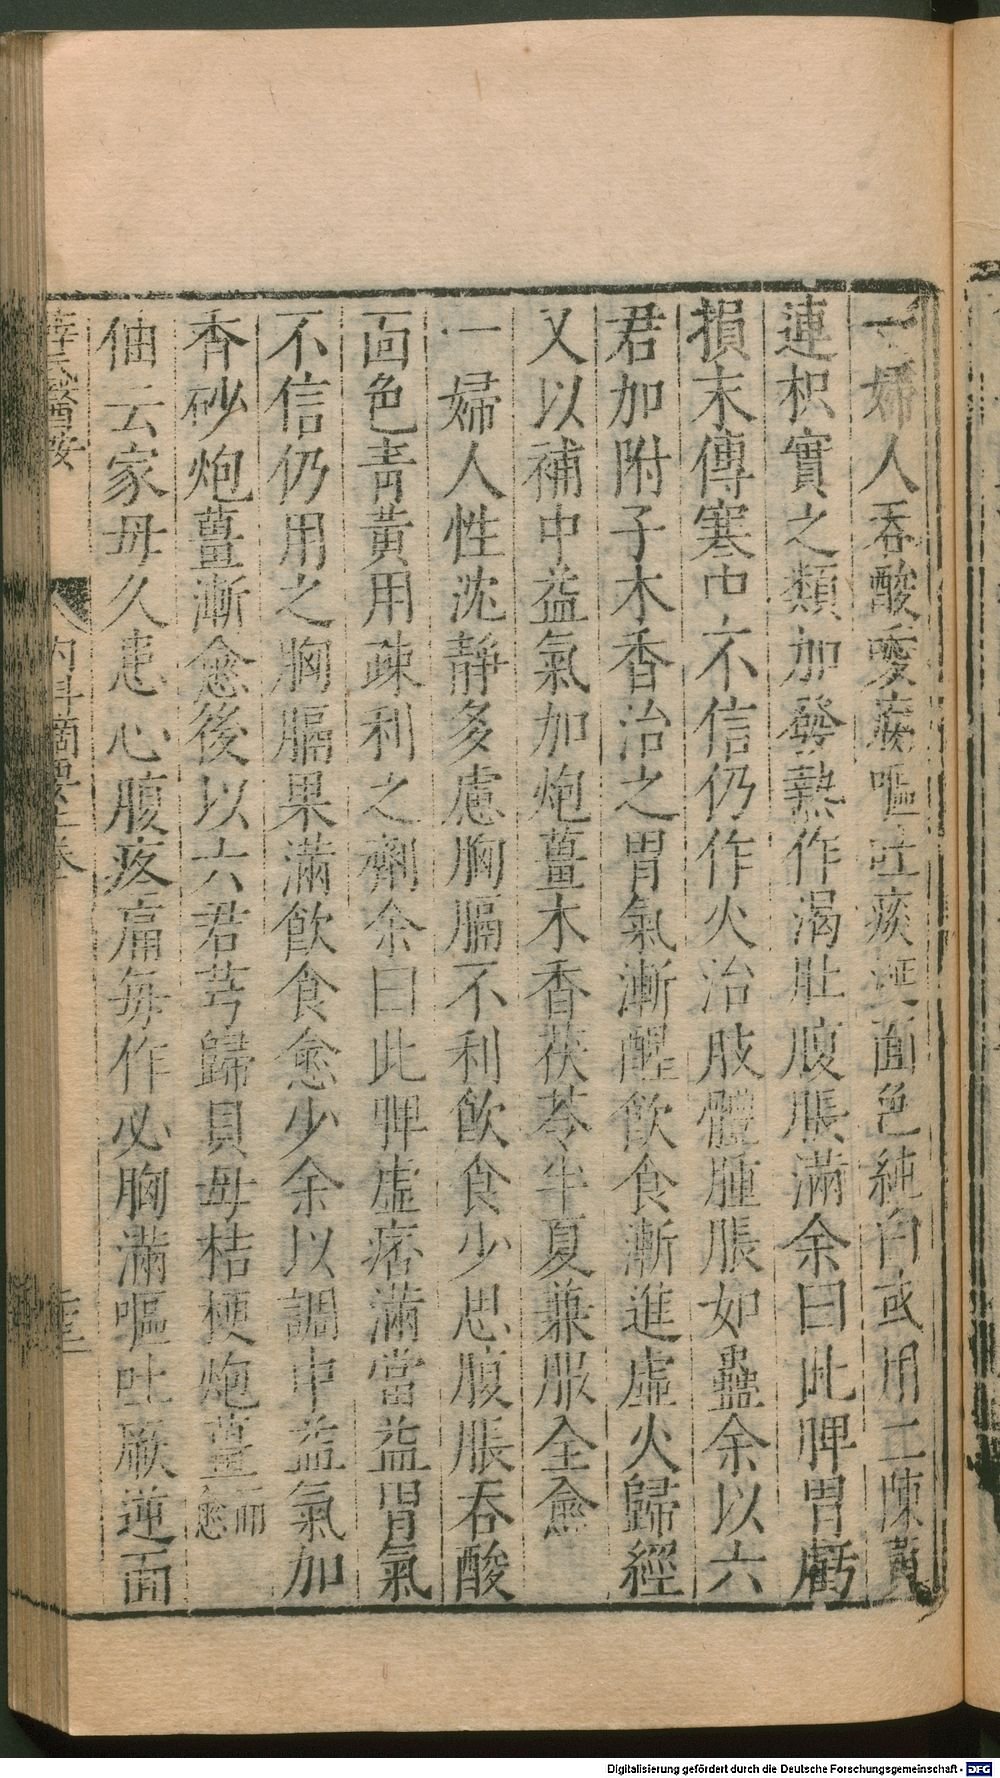 一婦人吞酸嗳腐嘔吐痰涎面色純白或用二陳黃
連枳實之類加發熱作渴肚腹脹滿余曰此脾胃虧
損末傳寒中不信仍作火治肢體腫脹如蠱余以六
君加附子木香治之胃氣漸醒飲食漸進虛火歸經
又以補中益氣加炮薑木香茯苓半夏兼服全愈
一婦人性沈靜多慮胸膈不利飲食少思腹脹吞酸
面色青黃用疎利之劑余曰此脾虛痞滿當益胃氣
不信仍用之胸膈果滿飲食愈少余以調中益氣加
香砂炮薑漸愈後以六君芎歸貝母桔梗炮薑而愈
伷云家母久患心腹疼痛每作必胸滿嘔吐厥逆面
薛氏醫按 內科摘要上卷
Digitalisierung gefördert durch die Deutsche Forschungsgemeinschaft - DFG